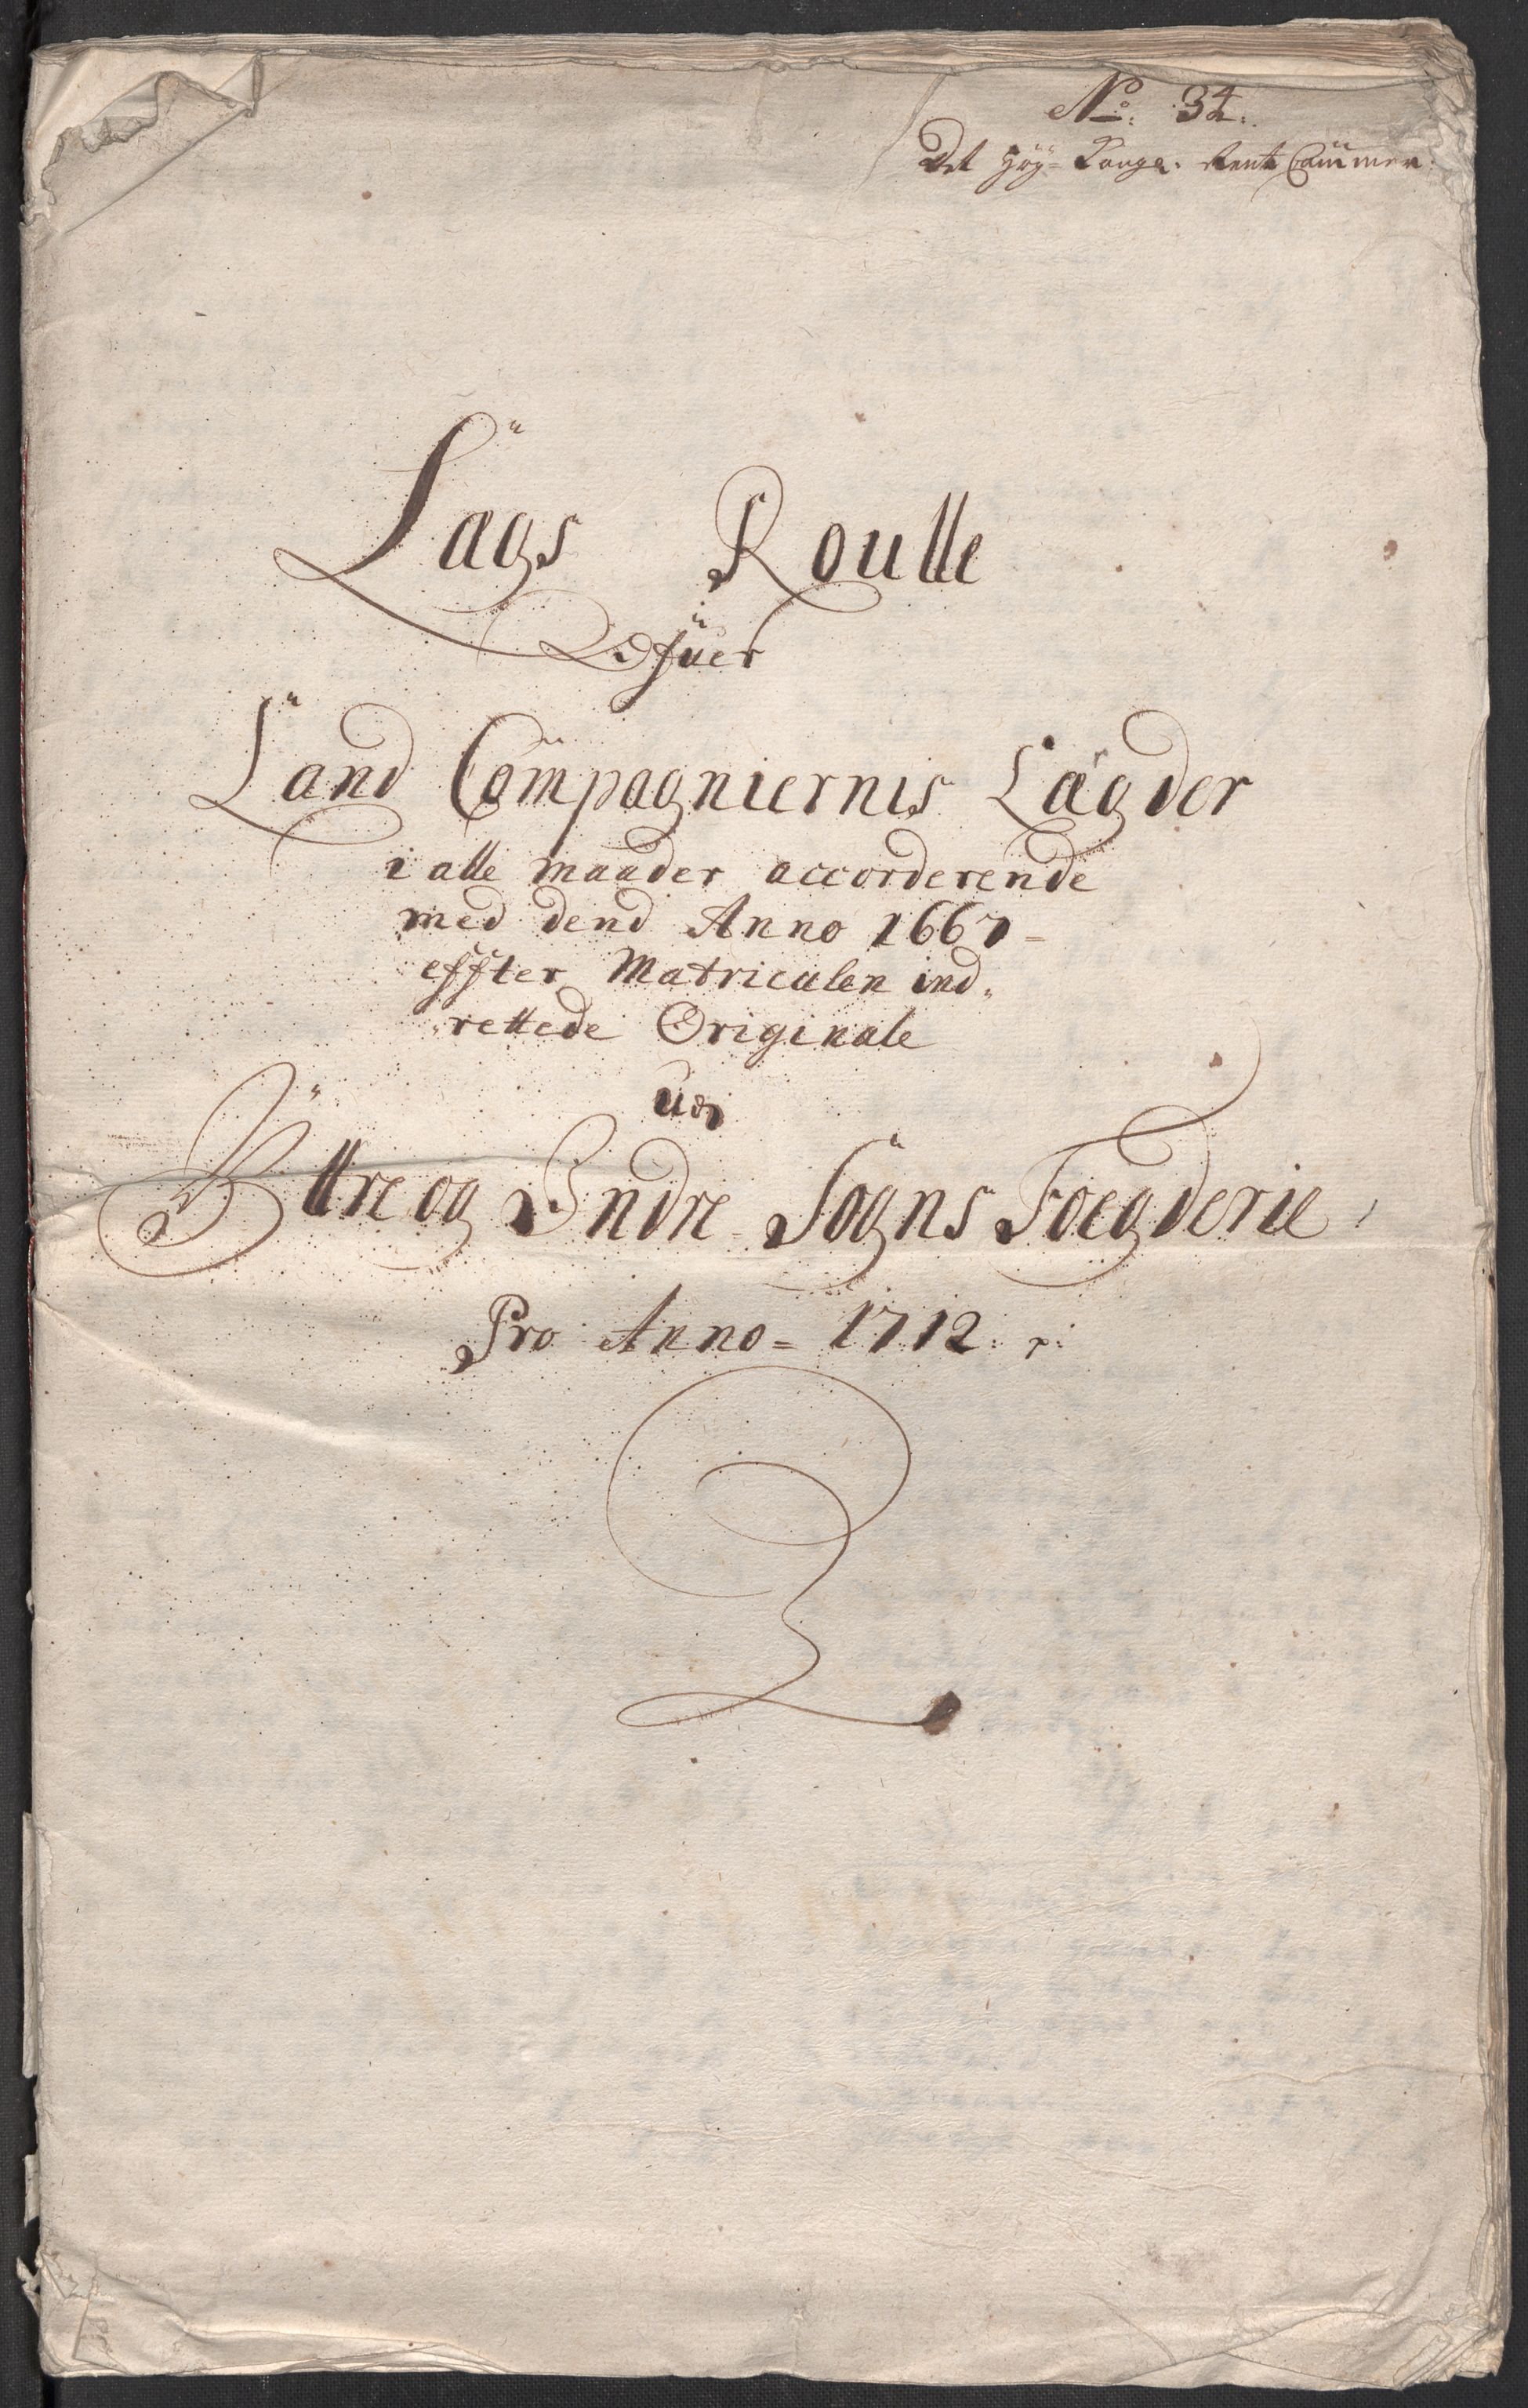 No: 34.
Det Høy- Konge: Rente Cammer.
Lägs Roulle
Ofuer
Land Compagniernis Lägder
i alle maader accorderende
med dend Anno 1667
effter Matriculen ind-
rettede Originale
udj
Yttre og Indre Sogns Foegderie
Pro Anno = 1712: